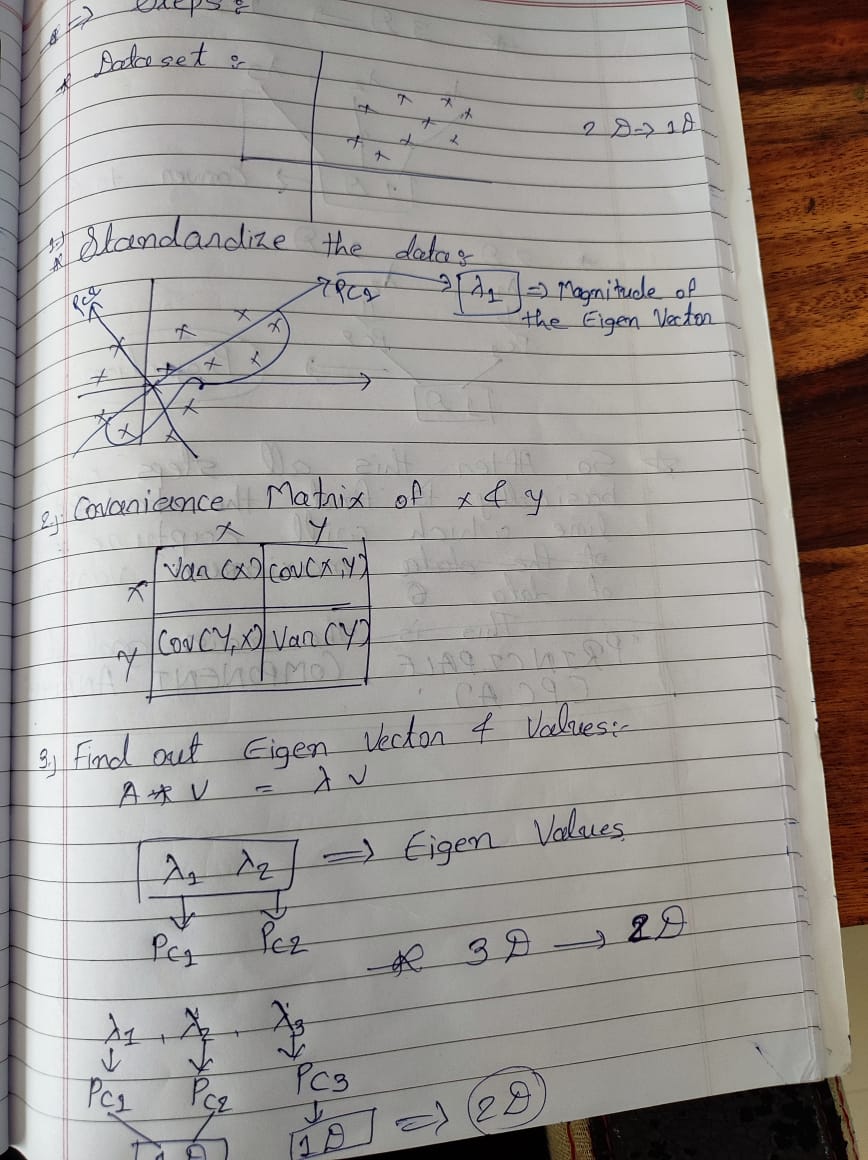 => Steps :
* Dataset :-
2 D => 1 D
1.) Standardize the data :
PC2
PC1 → λ1 => Magnitude of
the Eigen Vector
2.) Covarience Matrix of x & y
X Y
X Var (X) Cov(X,Y)
Y Cov(Y,X) Var (Y)
3.) Find out Eigen Vector & Values :-
A * V = λ V
λ1 λ2 => Eigen Values
PC1 PC2
* 3 D → 2 D
λ1 , λ2 , λ3
PC1 PC2 PC3
1 D 1 D => 2 D